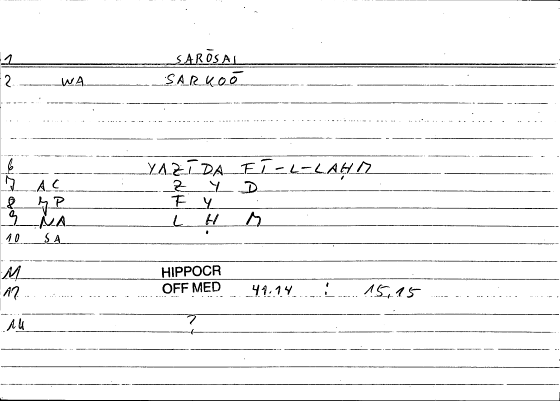 1 SARŌSAI
2 WA SARKOŌ
6 YAZĪDA FĪ-L-LAḤM
7 AC Z Y D
8 MP F Y
9 NA L Ḥ M
10 SA
11 HIPPOCR
12 OFF MED 41.14 : 15,15
14 ?